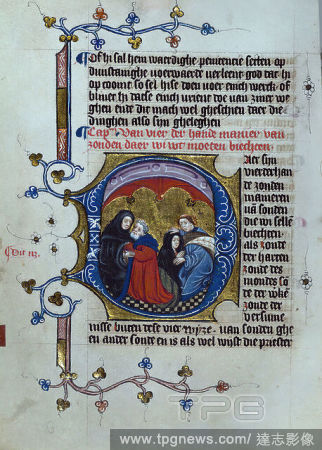 Of hi sal hem waerdighe penitencie setten op
dunstainghe voerwaerde verleent god dat hi
op coomt so sel hise doen voer enich werk of
bliuet in dese enich vrient die van
ghen ende die mach vel gheschien daer die
dinghen also sijn gheleghen
Cap Van vier der hande manier van
zonden daer wi we moeten biechten
Het sijn
vierderhan
de zonden
manieren
va sonden
die wi sellen
biechten
als zonde
der harten
zonde des
mondes zo
de der
zonde der
versume
nisse buten dese vier wize van sonden ghe
en ander sonde en is als wel wijst die priester
TPG
www.tpgnews.com / 達志影像